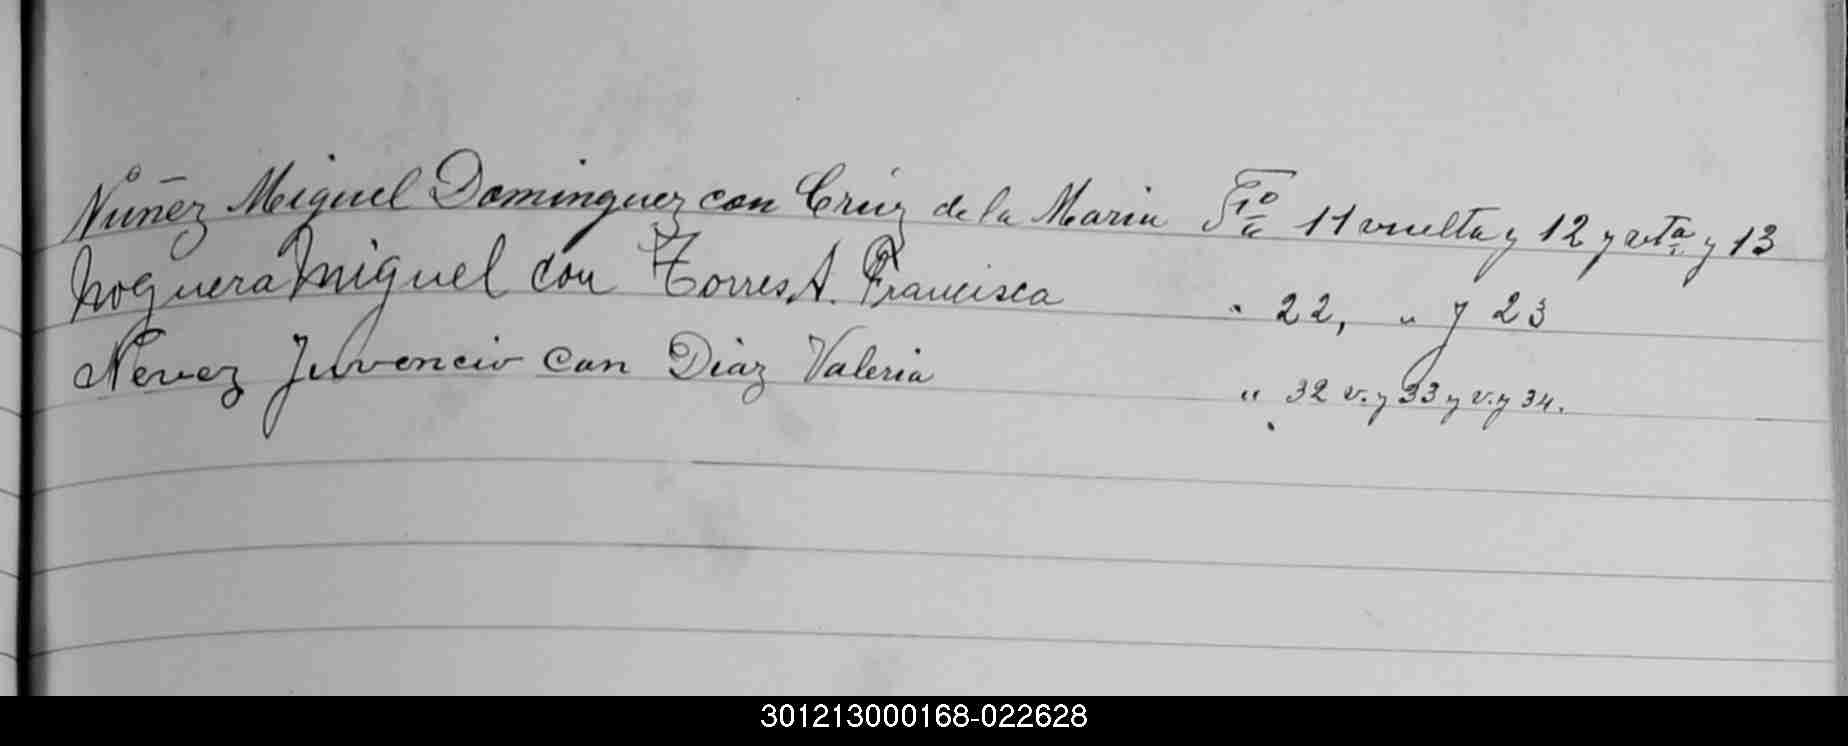 Núñez Miguel Dominguez con Crúz de la Maria Fo 11 vuelta y 12 y vta. y 13
Noguera Miguel con Torres A. Francisca " 22, " y 23
Nevez Juvencio con Diaz Valeria " 32 v. y 33 y v. y 34.
301213000168-022628